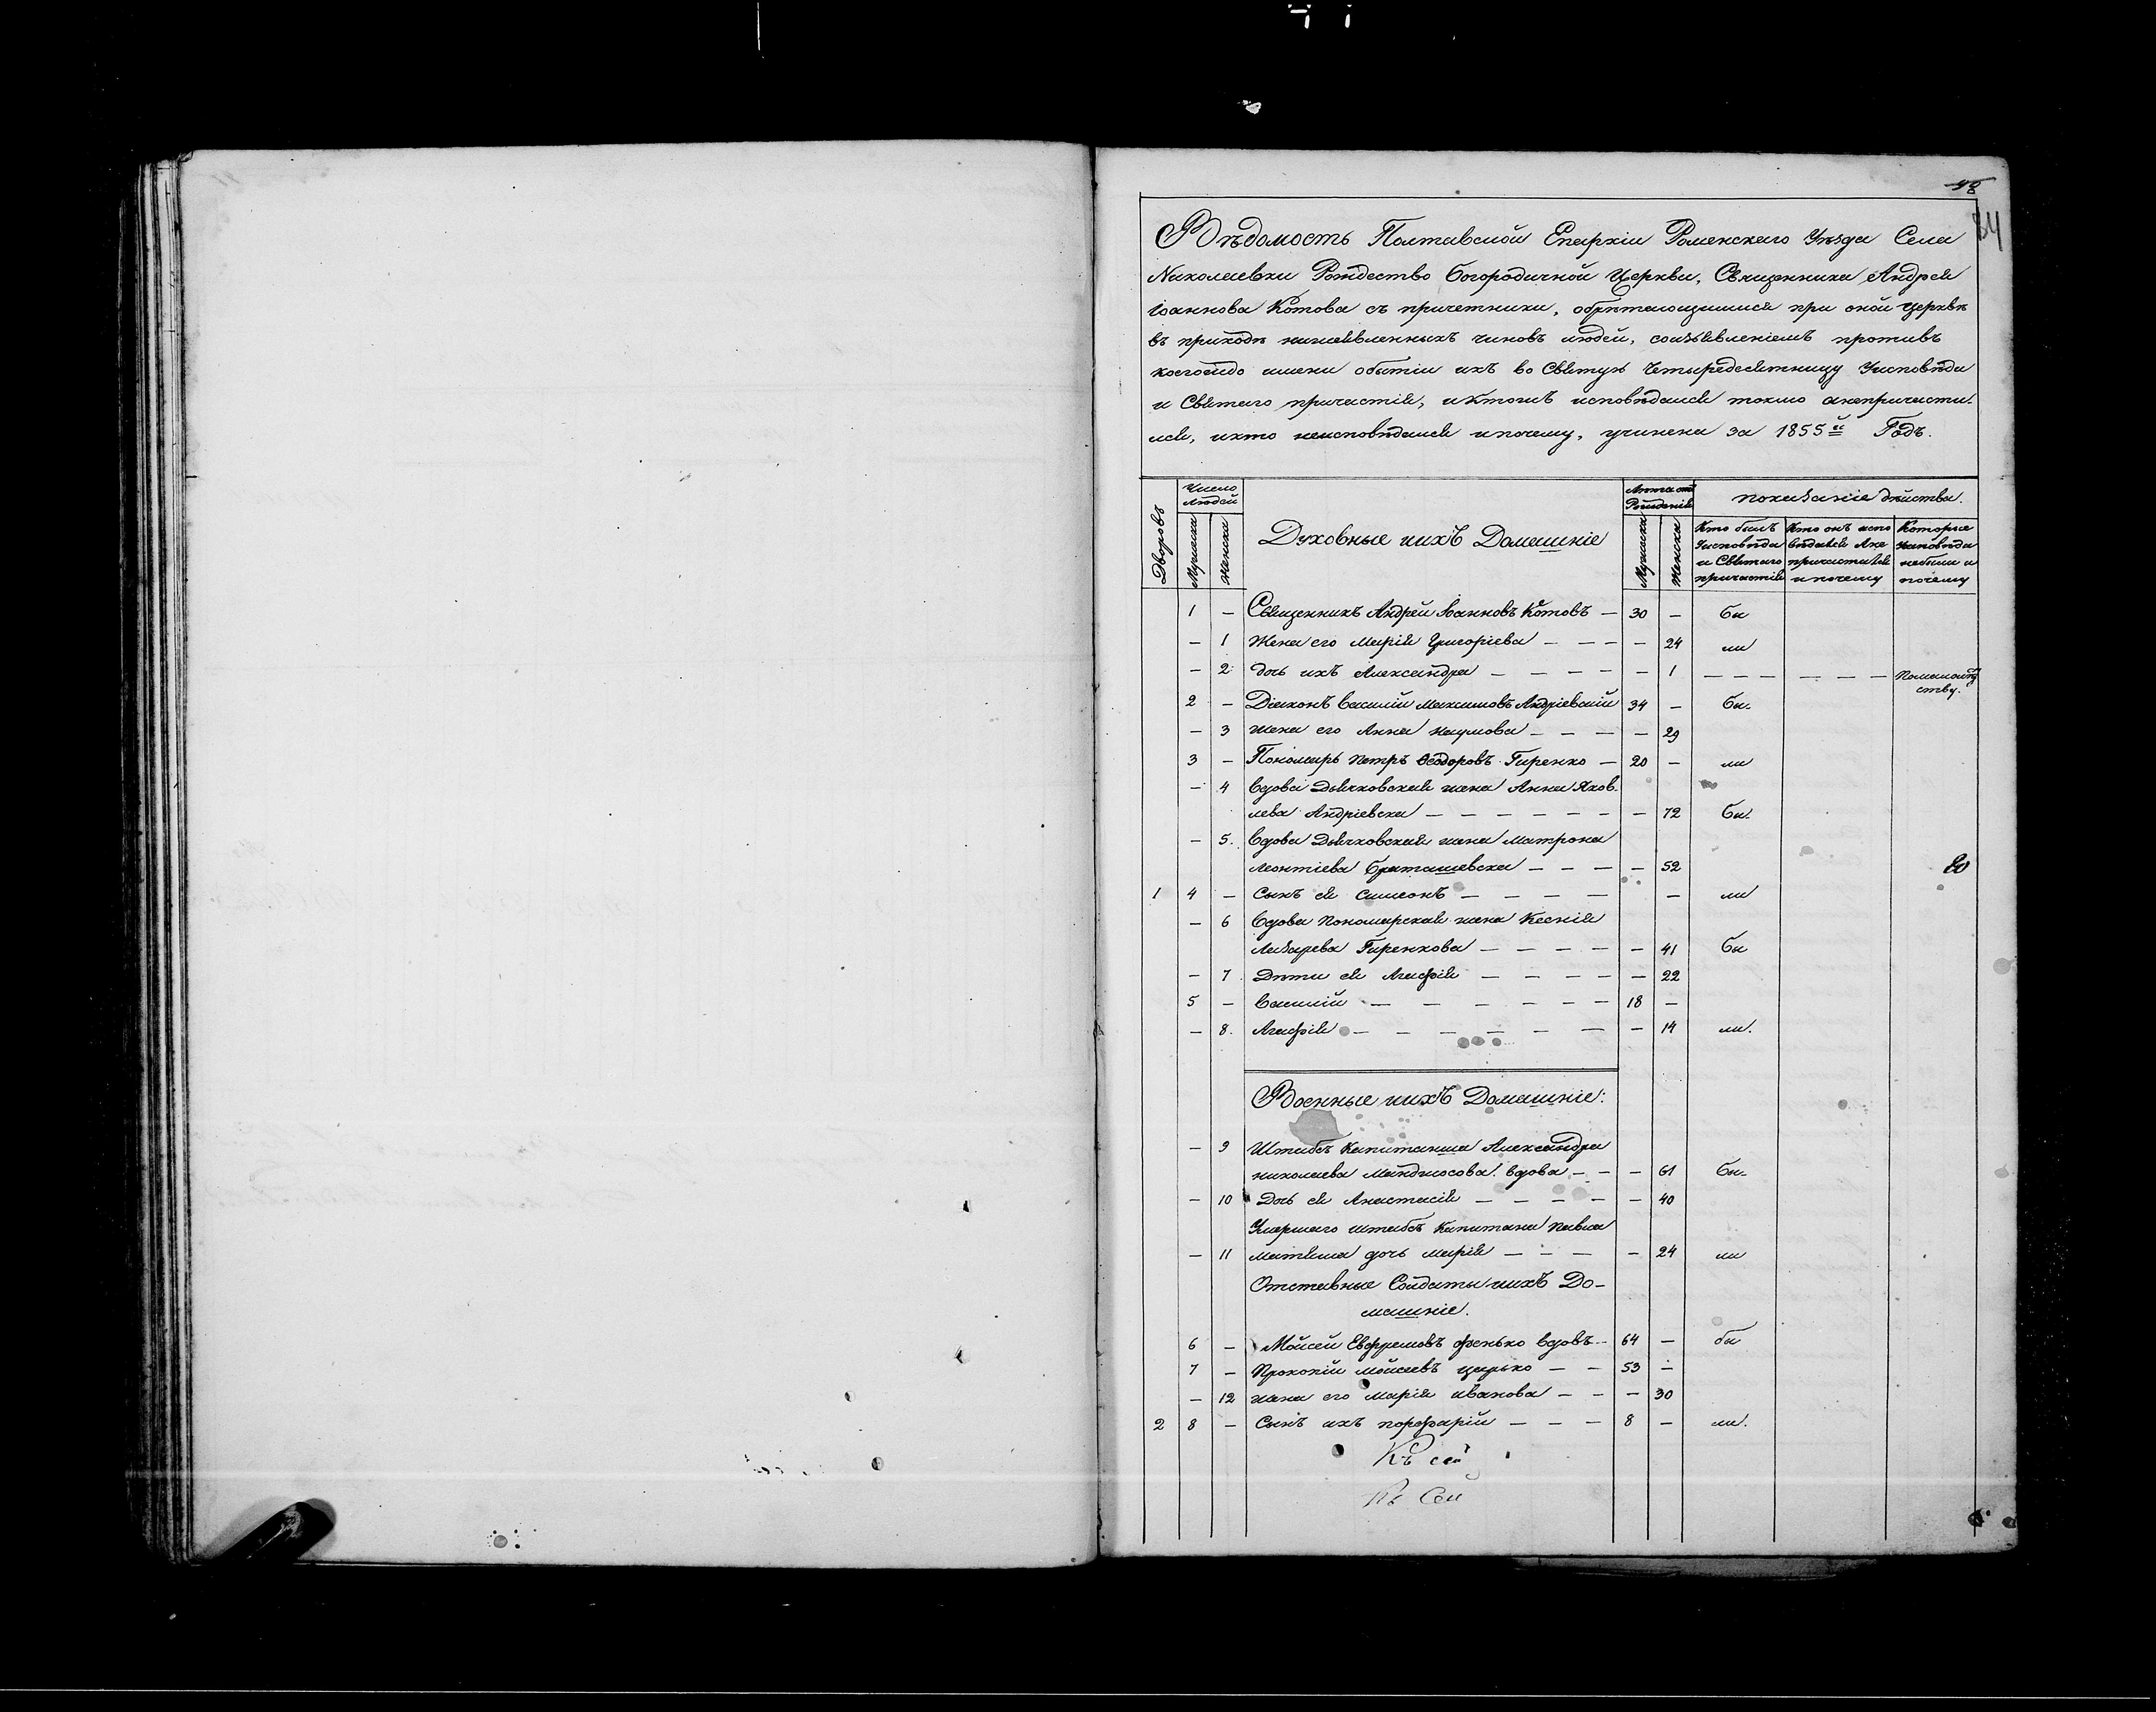 58
84
Вѣдомость Полтавской Епархіи Роменскаго Уѣзда Села
Николаевки Рождество Богородичной Церкви, Священника Андрея
Іоаннова Котова съ причетники, обрѣтающимися при оной церквѣ
въ приходѣ нижеявленныхъ чиновъ людей, соизъявленіемъ противъ
коегождо имени обытіи ихъ во Святую Четыредесятницу Уисповѣди
и Святаго причастія, иктожъ исповѣдался токмо анепричасти
лся, икто неисповѣдался ипочему, учинена за 1855й Годъ.
Дворовъ
Число людей
Мужеска
Женска
Духовные иихъ Домашніе
Лѣта отъ Рожденія
Мужеска
Женска
показаніе дѣйства.
Кто былъ Уисповѣди и Святаго причастія
Кто онъ испо вѣдался Ане причастился ипочему
Которые Уисповѣди небыли и почему
1 — Священникъ Андрей Іоанновъ Котовъ — 30 — бы
— 1 Жена его Марія Григоріева — — — — 24 ли
— 2 дочь ихъ Александра — — — — — 1 — — — — — — Помалолѣт
ству.
2 — Діаконъ Василій Максимовъ Андріевскій 34 — бы
— 3 жена его Анна Наумова — — — — 29
3 — Пономарь Петръ Ѳеодоровъ Гиренко — 20 — ли
— 4 Вдова Дьячковская жена Анна Яков
лева Андріевска — — — — — — — — 72 бы
— 5. Вдова Дьячковская жена Матрона
Леонтіева Браташевска — — — — 52
1 4 — Сынъ ея Симеонъ — — — — — ли
— 6 Вдова Пономарская жена Ксенія
Лазарева Гиренкова — — — — — 41 бы
— 7 Дѣти ея Агафія — — — — — 22
5 — Василій — — — — — — 18 —
— 8. Агафія — — — — — — — 14 ли.
Военные иихъ Домашніе:
— 9 Штабсъ Капитанша Александра
николаева вдова — — — 61 бы
— 10 Дочь ея Анастасія — — — — — 40
Умершаго штабсъ Капитана Павла
— 11 дочь Марія — — — — 24 ли
Отставные Солдаты иихъ До-
машніе.
6 — Мойсей Евфремовъ Фенько вдовъ — 64 — бы
7 — Прокопій Мойсеевъ Царько — — 53 —
— 12 жена его Марія Иванова — — — 30
2 8 — Сынъ ихъ порфирій — — — 8 — ли.
Къ сей
Къ Сей